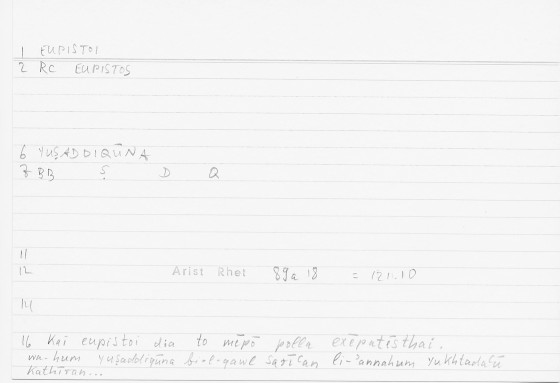 1 EUPISTOI
2 RC EUPISTOS
6 YUṢADDIQŪNA
7 BB Ṣ D Q
11
12 Arist Rhet 89a 18 = 121.10
14
16 Kai eupistoi dia to mēpō polla exēpatēsthai.
wa-hum yuṣaddiqūna bi-l-qawl sarīʿan li-ʾannahum yukhtadaʿū
Kathīran...